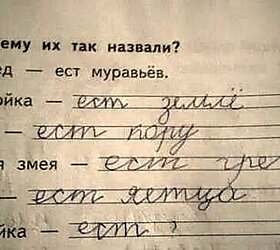 ему их так назвали?
ед — ест муравьёв.
ойка — ест землё
— ест кору
я змея — ест гре
— ест яетца
йка — ест